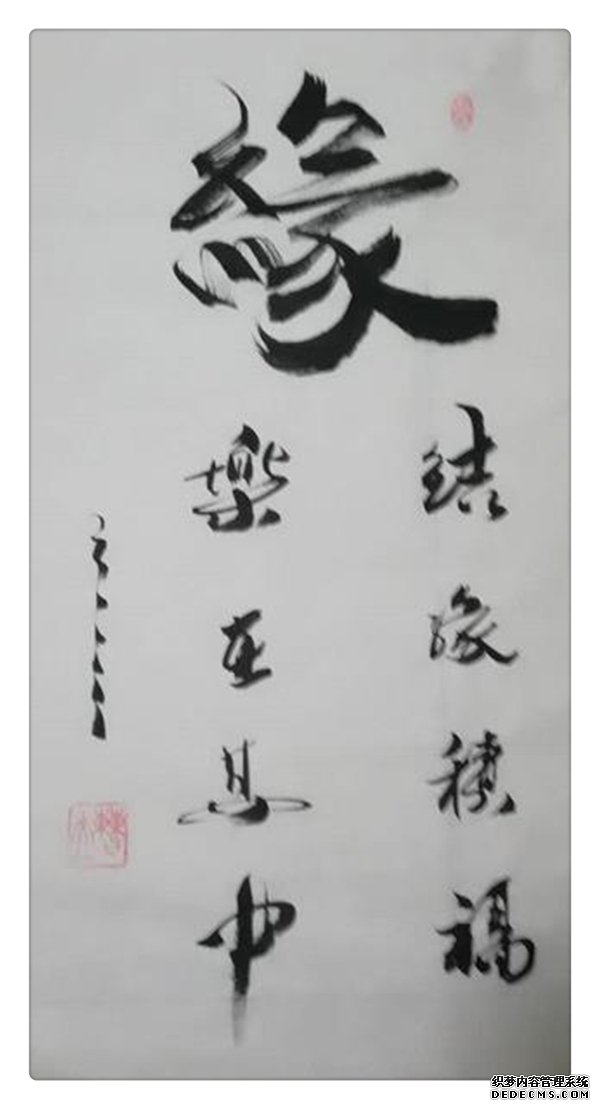 緣
結緣積福
樂在其中
织梦内容管理系统
DEDECMS.COM